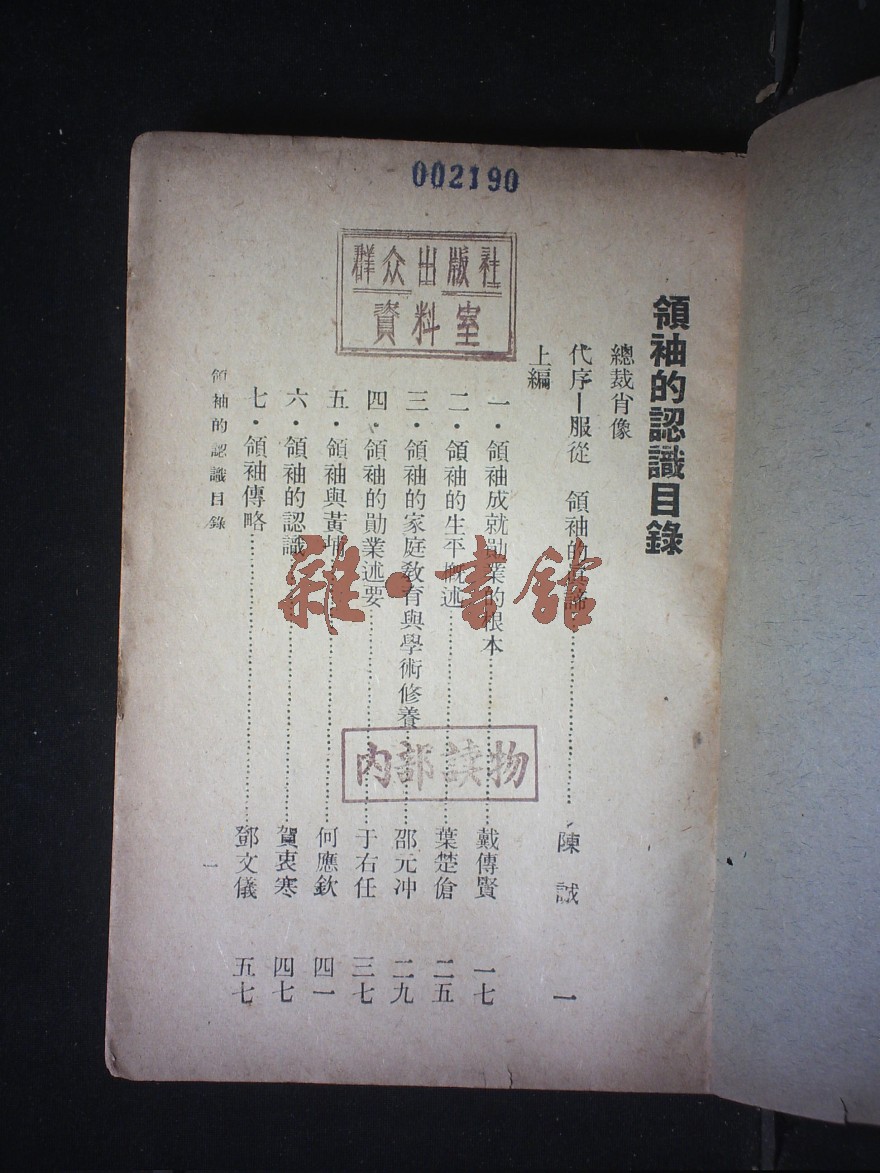 002190
群众出版社
資料室
領袖的認識目錄
總裁肖像
代序—服從 領袖的真諦…………陳 誠 一
上編
一・領袖成就勛業的根本…………戴傳賢 一七
二・領袖的生平概述…………葉楚傖 二五
三・領袖的家庭教育與學術修養…………邵元冲 二九
四・領袖的勛業述要…………于右任 三七
五・領袖與黃埔…………何應欽 四一
六・領袖的認識…………賀衷寒 四七
七・領袖傳略…………鄧文儀 五七
領袖的認識目錄
一
内部读物
雜・書館